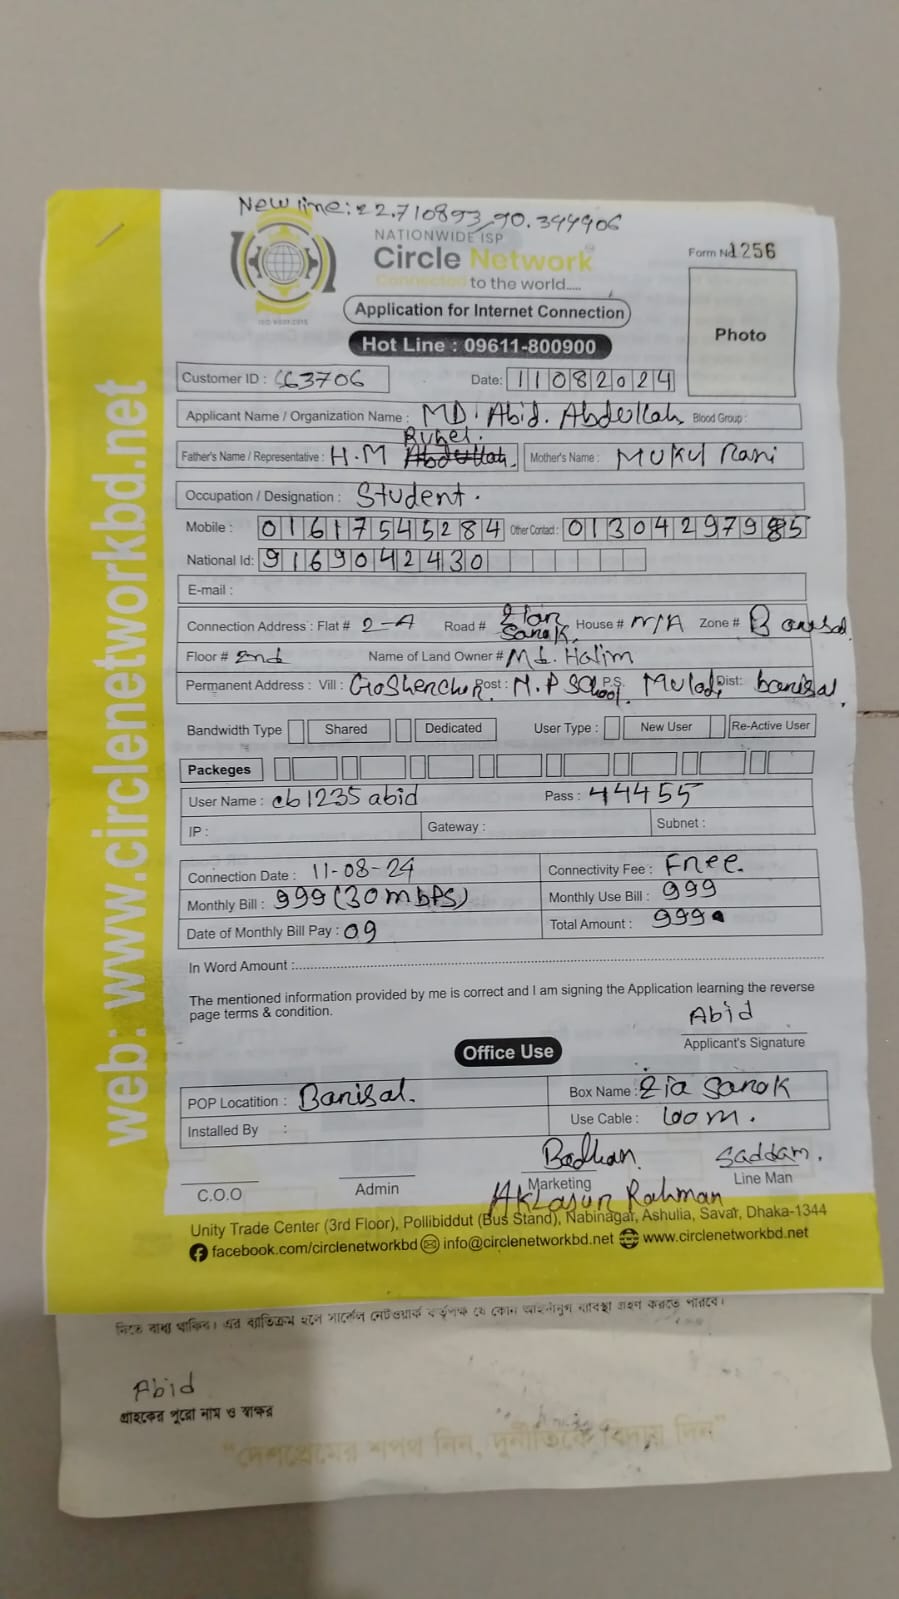 New line: 22.710893, 90.344906
NATIONWIDE ISP
Circle Network
Connected to the world.....
ISO 9001:2015
Form No 1256
Application for Internet Connection
Photo
Hot Line : 09611-800900
Customer ID : 663706 Date: 11082024
Applicant Name / Organization Name : MD. Abid. Abdullah Blood Group :
Rubel.
Father's Name / Representative : H.M Mother's Name : Mukul Rani
Occupation / Designation : Student.
Mobile : 01617545284 Other Contact : 01304297985
National Id: 9169042430
E-mail :
Connection Address : Flat # 2-A Road # Sarok. House # N/A Zone # Barisal
Floor # 2nd Name of Land Owner # Md. Halim
Permanent Address : Vill : Post : M.P School P.S. Muladi Dist: barisal
Bandwidth Type Shared Dedicated User Type : New User Re-Active User
Packeges
User Name : cb1235abid Pass : 44455
IP : Gateway : Subnet :
Connection Date : 11-08-24 Connectivity Fee : Free.
Monthly Bill : 999 (30 mbps) Monthly Use Bill : 999
Date of Monthly Bill Pay : 09 Total Amount : 999
In Word Amount :
The mentioned information provided by me is correct and I am signing the Application learning the reverse
page terms & condition.
Abid
Applicant's Signature
Office Use
POP Locatition : Barisal. Box Name : Zia Sarok
Installed By : Use Cable : 100m.
Badhan Saddam.
C.O.O Admin Marketing Line Man
Rahman
Unity Trade Center (3rd Floor), Pollibiddut (Bus Stand), Nabinagar, Ashulia, Savar, Dhaka-1344
facebook.com/circlenetworkbd info@circlenetworkbd.net www.circlenetworkbd.net
web: www.circlenetworkbd.net
নিতে বাধ্য থাকিব। এর ব্যতিক্রম হলে সার্কেল নেটওয়ার্ক কর্তৃপক্ষ যে কোন আইনানুগ ব্যবস্থা গ্রহণ করতে পারবে।
Abid
গ্রাহকের পুরো নাম ও স্বাক্ষর
“দেশপ্রেমের শপথ নিন, দুর্নীতিকে বিদায় দিন”